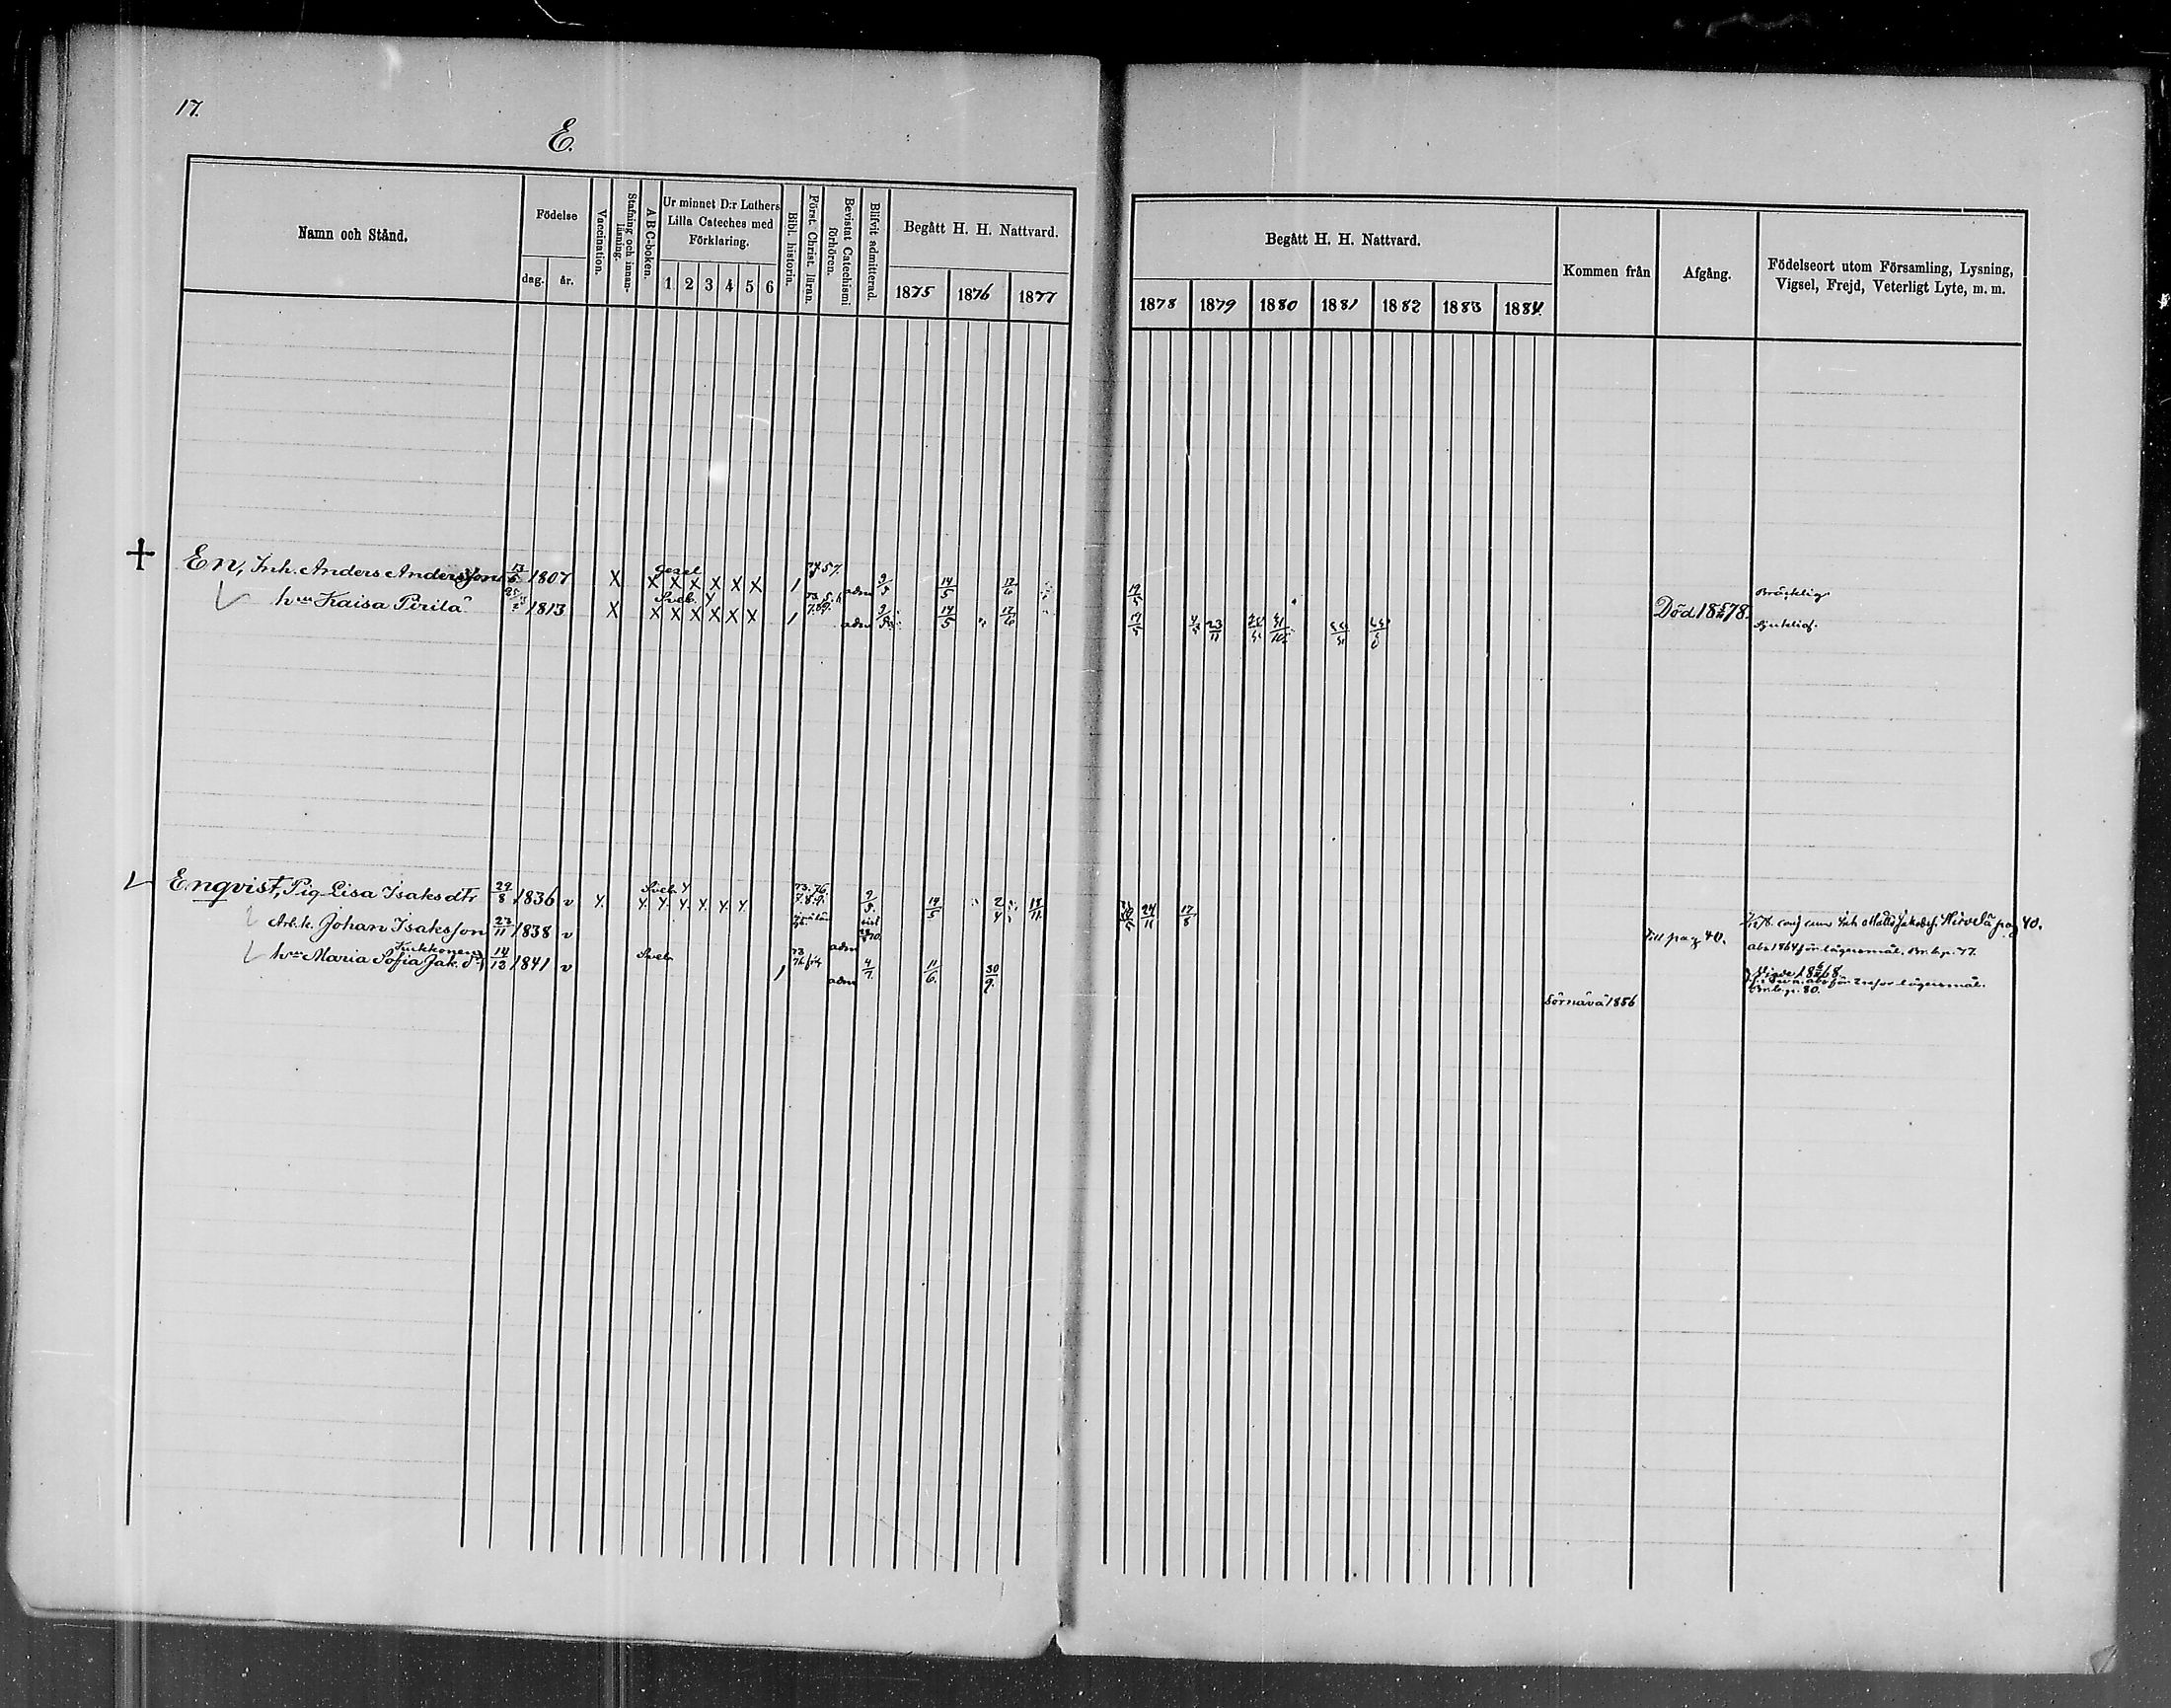 17.
E.
Namn och Stånd.
Födelse
dag.
år.
Vaccination.
Stafning och innan-
läsning.
ABC-boken.
Ur minnet D:r Luthers
Lilla Cateches med
Förklaring.
1 2 3 4 5 6
Bibl. historia.
Först. Christ. läran.
Bevistat Catechismi
förhören.
Blifvit admitterad.
Begått H. H. Nattvard.
1875 1876 1877
Begått H. H. Nattvard.
1878 1879 1880 1881 1882 1883 1884.
Kommen från
Afgång.
Födelseort utom Församling, Lysning,
Vigsel, Frejd, Veterligt Lyte, m. m.
En, Inh. Anders Andersson 13/5 1807 X Gezel X X X X X X 1 adm 9/5 14/5 17/6 19/5 Bräcklig
hru Kaisa Perilä 1813 X Sveb. X X X X X X 1 adm 9/5 14/5 17/6 19/5 23/11 Död 18 78. Sjuklig.
Enqvist, Pig. Lisa Isaksdtr 29/8 1836 v Sveb. 73.76. 7.8.9. 9/5. 14/5 2/4 18/11. 24/11 17/8
Arb.k. Johan Isaksson 23/11 1838 v adm Till pag 40. pag 40.
abs. 1864 för lägersmål.
Kukkonen
hru Maria Sofia Jak. d. 14/12 1841 v Sveb. 1 adm 4/7. 11/6. 30/9. Sörnävä 1856 Vigde 18 68.
för lägersmål.
80.